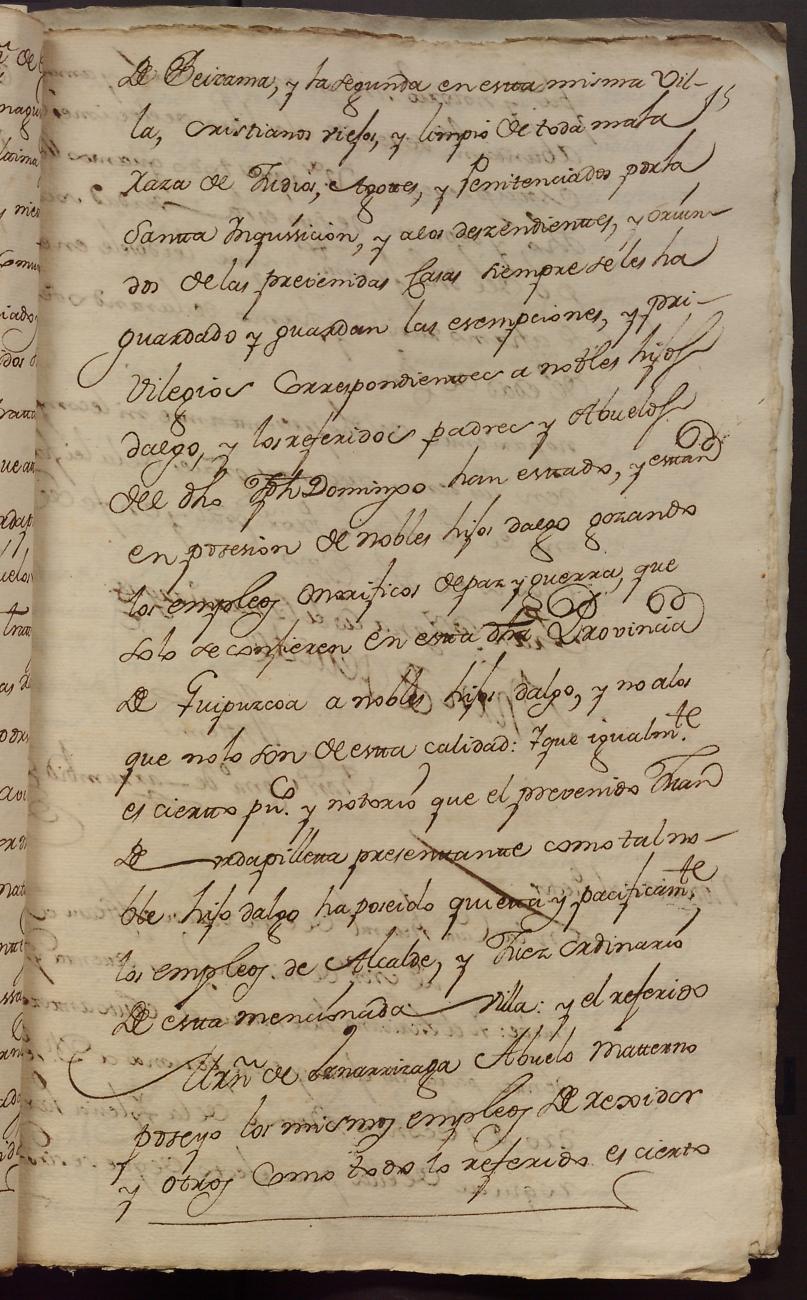 De Beizama, y la segunda en esta misma Vil-
15
la, cristianos viejos, y limpio de toda mala
Raza de Judios, Agotes, y Penitenciados por la
Santta Inquisicion, y a los deszendienttes, y oriun-
dos de las prevenidas Casas siempre se les ha
guardado y guardan las exempciones, y pri-
vilegios Correspondienttes a nobles hijos
dalgo, y los referidos padres y Abuelos
del dho Jph Domingo han estado, y estan
en posesion de nobles hijos dalgo gozando
los empleos onorificos de paz y guerra, que
solo se confieren en esta dha Provincia
De Guipuzcoa a nobles hijos dalgo, y no a los
que no lo son de esta calidad: Y que igualmte
es ciertto puco. y notorio que el prevenido Juan
De Urdapilleta presenttante como tal no-
ble hijo dalgo ha poseido quieta y pacificamte,
los empleos de Alcalde, y Juez ordinario
De estta mencionada Villa: y el referido
Martn de Lanarrizaga Abuelo Matterno
poseyo los mismos empleos De rexidor
y otros Como todo lo referido es cierto